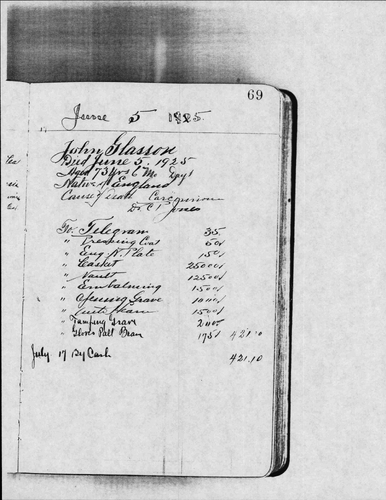 69
June 5 1925.
John Glasson
Died June 5, 1925
Aged 73 Yrs 6 Mo Dys
Native of England
Cause of death Carcinoma
Dr C P Jones
To Telegram 35
" Dressing Coat 6 00
" Eng N. Plate 1 50
" Casket 250 00
" Vault 125 00
" Embalming 15 00
" Opening Grave 10 00
" 15 00
" Grave 2 00
" Gloves Pall Bear 1 75 421.10
July 17 By Cash 421.10